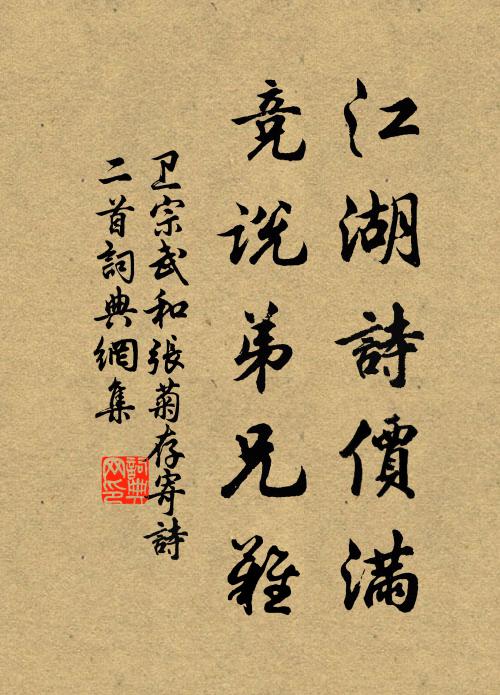 江湖詩價滿
竞说弟兄難
卫宗武和張菊存寄詩
二首詞典網集
詞典
网印